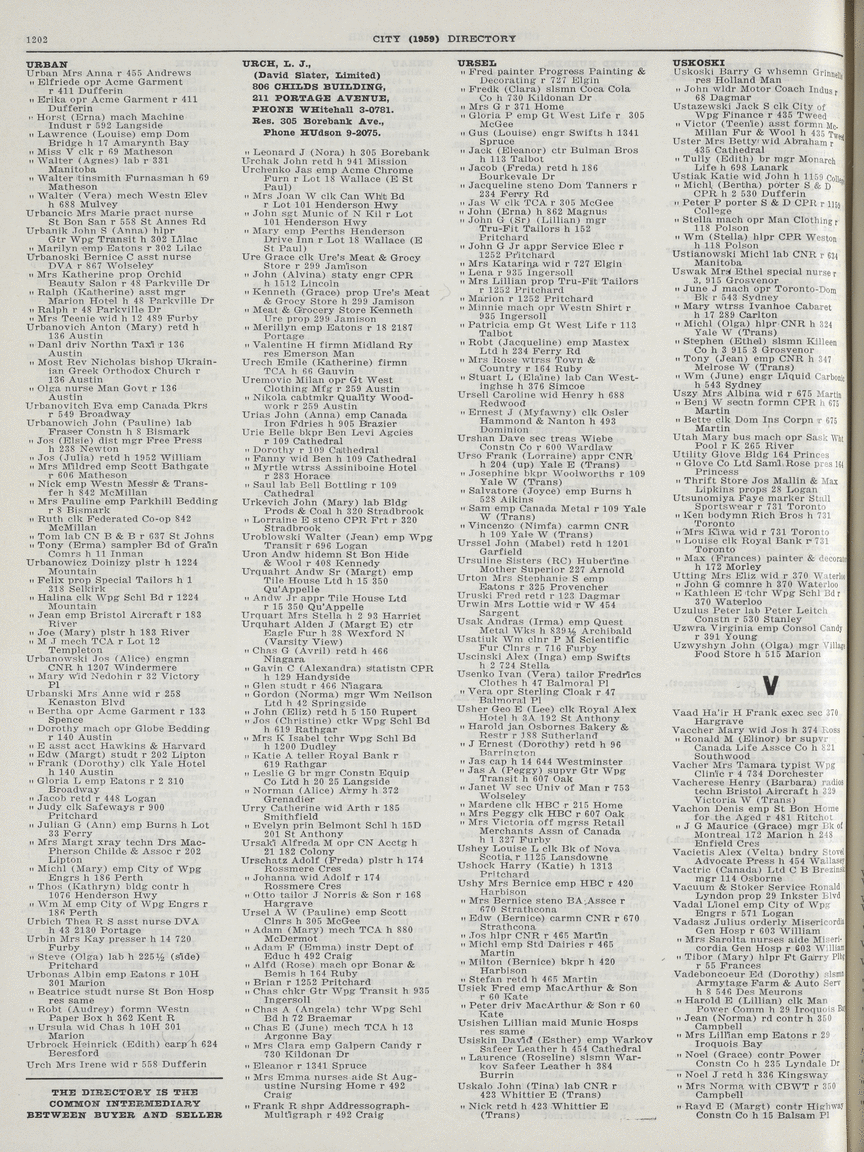 1202
CITY (1959) DIRECTORY
URBAN
Urban Mrs Anna r 455 Andrews
" Elfriede opr Acme Garment
r 411 Dufferin
" Erika opr Acme Garment r 411
Dufferin
" Horst (Erna) mach Machine
Indust r 592 Langside
" Lawrence (Louise) emp Dom
Bridge h 17 Amarynth Bay
" Miss V clk r 69 Matheson
" Walter (Agnes) lab r 331
Manitoba
" Walter tinsmith Furnasman h 69
Matheson
" Walter (Vera) mech Westn Elev
h 688 Mulvey
Urbancic Mrs Marie pract nurse
St Bon San r 558 St Annes Rd
Urbanik John S (Anna) hlpr
Gtr Wpg Transit h 302 Lilac
" Marilyn emp Eatons r 302 Lilac
Urbanoski Bernice C asst nurse
DVA r 867 Wolseley
" Mrs Katherine prop Orchid
Beauty Salon r 48 Parkville Dr
" Ralph (Katherine) asst mgr
Marion Hotel h 48 Parkville Dr
" Ralph r 48 Parkville Dr
" Mrs Teenie wid h 12 489 Furby
Urbanovich Anton (Mary) retd h
136 Austin
" Danl driv Northn Taxi r 136
Austin
" Most Rev Nicholas bishop Ukrain-
ian Greek Orthodox Church r
136 Austin
" Olga nurse Man Govt r 136
Austin
Urbanovitch Eva emp Canada Pkrs
r 549 Broadway
Urbanowich John (Pauline) lab
Fraser Constn h 8 Bismark
" Jos (Elsie) dist mgr Free Press
h 238 Newton
" Jos (Julia) retd h 1952 William
" Mrs Mildred emp Scott Bathgate
r 606 Matheson
" Nick emp Westn Messr & Trans-
fer h 842 McMillan
" Mrs Pauline emp Parkhill Bedding
r 8 Bismark
" Ruth clk Federated Co-op 842
McMillan
" Tom lab CN B & B r 637 St Johns
" Tony (Erna) sampler Bd of Grain
Comrs h 11 Inman
Urbanowicz Doinizy plstr h 1224
Mountain
" Felix prop Special Tailors h 1
318 Selkirk
" Halina clk Wpg Schl Bd r 1224
Mountain
" Jean emp Bristol Aircraft r 183
River
" Joe (Mary) plstr h 183 River
" M J mech TCA r Lot 12
Templeton
Urbanowski Jos (Alice) engmn
CNR h 1207 Windermere
" Mary wid Nedohin r 32 Victory
Pl
Urbanski Mrs Anne wid r 258
Kenaston Blvd
" Bertha opr Acme Garment r 133
Spence
" Dorothy mach opr Globe Bedding
r 140 Austin
" E asst acct Hawkins & Harvard
" Edw (Margt) studt r 202 Lipton
" Frank (Dorothy) clk Yale Hotel
h 140 Austin
" Gloria L emp Eatons r 2 310
Broadway
" Jacob retd r 448 Logan
" Judy clk Safeways r 900
Pritchard
" Julian G (Ann) emp Burns h Lot
33 Ferry
" Mrs Margt xray techn Drs Mac-
Pherson Childe & Assoc r 202
Lipton
" Michl (Mary) emp City of Wpg
Engrs h 186 Perth
" Thos (Kathryn) bldg contr h
1076 Henderson Hwy
" Wm M emp City of Wpg Engrs r
186 Perth
Urbich Thea R S asst nurse DVA
h 43 2130 Portage
Urbin Mrs Kay presser h 14 720
Furby
" Steve (Olga) lab h 225½ (side)
Pritchard
Urbonas Albin emp Eatons r 10H
301 Marion
" Beatrice studt nurse St Bon Hosp
res same
" Robt (Audrey) formn Westn
Paper Box h 362 Kent R
" Ursula wid Chas h 10H 301
Marion
Urbrock Heinrick (Edith) carp h 624
Beresford
Urch Mrs Irene wid r 558 Dufferin
THE DIRECTORY IS THE
COMMON INTERMEDIARY
BETWEEN BUYER AND SELLER
URCH, L. J.,
(David Slater, Limited)
806 CHILDS BUILDING,
211 PORTAGE AVENUE,
PHONE WHitehall 3-0781.
Res. 305 Borebank Ave.,
Phone HUdson 9-2075.
" Leonard J (Nora) h 305 Borebank
Urchak John retd h 941 Mission
Urchenko Jas emp Acme Chrome
Furn r Lot 18 Wallace (E St
Paul)
" Mrs Joan W clk Can Wht Bd
r Lot 101 Henderson Hwy
" John sgt Munic of N Kil r Lot
101 Henderson Hwy
" Mary emp Perths Henderson
Drive Inn r Lot 18 Wallace (E
St Paul)
Ure Grace clk Ure's Meat & Grocy
Store r 299 Jamison
" John (Alvina) staty engr CPR
h 1512 Lincoln
" Kenneth (Grace) prop Ure's Meat
& Grocy Store h 299 Jamison
" Meat & Grocery Store Kenneth
Ure prop 299 Jamison
" Merillyn emp Eatons r 18 2187
Portage
" Valentine H firmn Midland Ry
res Emerson Man
Urech Emile (Katherine) firmn
TCA h 66 Gauvin
Uremovic Milan opr Gt West
Clothing Mfg r 259 Austin
" Nikola cabtmkr Quality Wood-
work r 259 Austin
Urias John (Anna) emp Canada
Iron Fdries h 905 Brazier
Urie Belle bkpr Ben Levi Agcies
r 109 Cathedral
" Dorothy r 109 Cathedral
" Fanny wid Ben h 109 Cathedral
" Myrtle wtrss Assiniboine Hotel
r 283 Horace
" Saul lab Bell Bottling r 109
Cathedral
Urkevich John (Mary) lab Bldg
Prods & Coal h 320 Stradbrook
" Lorraine E steno CPR Frt r 320
Stradbrook
Uroblowski Walter (Jean) emp Wpg
Transit r 696 Logan
Uron Andw hidemn St Bon Hide
& Wool r 408 Kennedy
Urquhart Andw Sr (Margt) emp
Tile House Ltd h 15 350
Qu'Appelle
" Andw Jr appr Tile House Ltd
r 15 350 Qu'Appelle
Urquart Mrs Stella h 2 93 Harriet
Urquhart Alden J (Margt E) ctr
Eagle Fur h 38 Wexford N
(Varsity View)
" Chas G (Avril) retd h 466
Niagara
" Gavin C (Alexandra) statistn CPR
h 129 Handyside
" Glen studt r 466 Niagara
" Gordon (Norma) mgr Wm Neilson
Ltd h 42 Springside
" John (Eliz) retd h 5 150 Rupert
" Jos (Christine) ctkr Wpg Schl Bd
h 619 Rathgar
" Mrs K Isabel tchr Wpg Schl Bd
h 1200 Dudley
" Katie A teller Royal Bank r
619 Rathgar
" Leslie G br mgr Constn Equip
Co Ltd h 20 25 Langside
" Norman (Alice) Army h 372
Grenadier
Urry Catherine wid Arth r 185
Smithfield
" Evelyn prin Belmont Schl h 15D
201 St Anthony
Ursaki Alfreda M opr CN Acctg h
21 182 Colony
Urschatz Adolf (Freda) plstr h 174
Rossmere Cres
" Johanna wid Adolf r 174
Rossmere Cres
" Otto tailor J Norris & Son r 168
Hargrave
Ursel A W (Pauline) emp Scott
Clnrs h 305 McGee
" Adam (Mary) mech TCA h 880
McDermot
" Adam F (Emma) instr Dept of
Educ h 492 Craig
" Alfd (Rose) mach opr Bonar &
Bemis h 164 Ruby
" Brian r 1252 Pritchard
" Chas chkr Gtr Wpg Transit h 935
Ingersoll
" Chas A (Angela) tchr Wpg Schl
Bd h 72 Braemar
" Chas E (June) mech TCA h 13
Argonne Bay
" Mrs Clara emp Galpern Candy r
730 Kildonan Dr
" Eleanor r 1341 Spruce
" Mrs Emma nurses aide St Aug-
ustine Nursing Home r 492
Craig
" Frank R shpr Addressograph-
Multigraph r 492 Craig
URSEL
" Fred painter Progress Painting &
Decorating r 727 Elgin
" Fredk (Clara) slsmn Coca Cola
Co h 730 Kildonan Dr
" Mrs G r 371 Home
" Gloria P emp Gt West Life r 305
McGee
" Gus (Louise) engr Swifts h 1341
Spruce
" Jack (Eleanor) ctr Bulman Bros
h 113 Talbot
" Jacob (Freda) retd h 186
Bourkevale Dr
" Jacqueline steno Dom Tanners r
234 Ferry Rd
" Jas W clk TCA r 305 McGee
" John (Erna) h 862 Magnus
" John G (Sr) (Lillian) mgr
Tru-Fit Tailors h 152
Pritchard
" John G Jr appr Service Elec r
1252 Pritchard
" Mrs Katarina wid r 727 Elgin
" Lena r 935 Ingersoll
" Mrs Lillian prop Tru-Fit Tailors
r 1252 Pritchard
" Marion r 1252 Pritchard
" Minnie mach opr Westn Shirt r
935 Ingersoll
" Patricia emp Gt West Life r 113
Talbot
" Robt (Jacqueline) emp Mastex
Ltd h 234 Ferry Rd
" Mrs Rose wtrss Town &
Country r 164 Ruby
" Stuart L (Elaine) lab Can West-
inghse h 376 Simcoe
Ursell Caroline wid Henry h 688
Redwood
" Ernest J (Myfawny) clk Osler
Hammond & Nanton h 493
Dominion
Urshan Dave sec treas Wiebe
Constn Co r 600 Wardlaw
Urso Frank (Lorraine) appr CNR
h 204 (up) Yale E (Trans)
" Josephine bkpr Woolworths r 109
Yale W (Trans)
" Salvatore (Joyce) emp Burns h
528 Aikins
" Sam emp Canada Metal r 109 Yale
W (Trans)
" Vincenzo (Nimfa) carmn CNR
h 109 Yale W (Trans)
Urssel John (Mabel) retd h 1201
Garfield
Ursuline Sisters (RC) Hubertine
Mother Superior 227 Arnold
Urton Mrs Stephanie S emp
Eatons r 325 Provencher
Uruski Fred retd r 123 Dagmar
Urwin Mrs Lottie wid r W 454
Sargent
Usak Andras (Irma) emp Quest
Metal Wks h 839½ Archibald
Usatiuk Wm clnr P M Scientific
Fur Clnrs r 716 Furby
Uscinski Alex (Inga) emp Swifts
h 2 724 Stella
Usenko Ivan (Vera) tailor Fredrics
Clothes h 47 Balmoral Pl
" Vera opr Sterling Cloak r 47
Balmoral Pl
Usher Geo E (Lee) clk Royal Alex
Hotel h 3A 192 St Anthony
" Harold jan Osbornes Bakery &
Restr r 188 Sutherland
" J Ernest (Dorothy) retd h 96
Barrington
" Jas cap h 14 644 Westminster
" Jas A (Peggy) supvr Gtr Wpg
Transit h 607 Oak
" Janet W sec Univ of Man r 753
Wolseley
" Mardene clk HBC r 215 Home
" Mrs Peggy clk HBC r 607 Oak
" Mrs Victoria off mgrss Retail
Merchants Assn of Canada
h 1 327 Furby
Ushey Louise L clk Bk of Nova
Scotia r 1125 Lansdowne
Ushock Harry (Katie) h 1313
Pritchard
Ushy Mrs Bernice emp HBC r 420
Harbison
" Mrs Bernice steno BA Assce r
670 Strathcona
" Edw (Bernice) carmn CNR r 670
Strathcona
" Jos hlpr CNR r 465 Martin
" Michl emp Std Dairies r 465
Martin
" Milton (Bernice) bkpr h 420
Harbison
" Stefan retd h 465 Martin
Usiek Fred emp MacArthur & Son
r 60 Kate
" Peter driv MacArthur & Son r 60
Kate
Usishen Lillian maid Munic Hosps
res same
Usiskin David (Esther) emp Warkov
Safeer Leather h 454 Cathedral
" Laurence (Roseline) slsmn War-
kov Safeer Leather h 384
Burrin
Uskalo John (Tina) lab CNR r
423 Whittier E (Trans)
" Nick retd h 423 Whittier E
(Trans)
USKOSKI
Uskoski Barry G whsemn Grinnells
res Holland Man
" John wldr Motor Coach Indus r
68 Dagmar
Ustazewski Jack S clk City of
Wpg Finance r 435 Tweed
" Victor (Teenie) asst formn Mc-
Millan Fur & Wool h 435 Tweed
Uster Mrs Betty wid Abraham r
435 Cathedral
" Tully (Edith) br mgr Monarch
Life h 698 Lanark
Ustiak Katie wid John h 1159 College
" Michl (Bertha) porter S & D
CPR h 2 530 Dufferin
" Peter P porter S & D CPR r 1159
College
" Stella mach opr Man Clothing r
118 Polson
" Wm (Stella) hlpr CPR Weston
h 118 Polson
Ustianowski Michl lab CNR r 634
Manitoba
Uswak Mrs Ethel special nurse r
3, 915 Grosvenor
" June J mach opr Toronto-Dom
Bk r 543 Sydney
" Mary wtrss Ivanhoe Cabaret
h 17 289 Carlton
" Michl (Olga) hlpr CNR h 324
Yale W (Trans)
" Stephen (Ethel) slsmn Killeen
Co h 3 915 3 Grosvenor
" Tony (Jean) emp CNR h 347
Melrose W (Trans)
" Wm (June) engr Liquid Carbonic
h 543 Sydney
Uszy Mrs Albina wid r 675 Martin
" Benj W sectn formn CPR h 675
Martin
" Bette clk Dom Ins Corpn r 675
Martin
Utah Mary bus mach opr Sask Wht
Pool r K 265 River
Utility Glove Bldg 164 Princess
" Glove Co Ltd Saml Rose pres 164
Princess
" Thrift Store Jos Mallin & Max
Lipkins props 28 Logan
Utsunomiya Faye marker Stall
Sportswear r 731 Toronto
" Ken bodymn Rich Bros h 731
Toronto
" Mrs Kiwa wid r 731 Toronto
" Louise clk Royal Bank r 731
Toronto
" Max (Frances) painter & decorator
h 172 Morley
Utting Mrs Eliz wid r 370 Waterloo
" John G comnre h 370 Waterloo
" Kathleen E tchr Wpg Schl Bd r
370 Waterloo
Uzulus Peter lab Peter Leitch
Constn r 530 Stanley
Uzwra Virginia emp Consol Candy
r 391 Young
Uzwyshyn John (Olga) mgr Village
Food Store h 515 Marion
V
Vaad Ha'ir H Frank exec sec 370
Hargrave
Vaccher Mary wid Jos h 374 Ross
" Ronald M (Elinor) br supvr
Canada Life Assce Co h 821
Southwood
Vacher Mrs Tamara typist Wpg
Clinic r 4 734 Dorchester
Vacherese Henry (Barbara) radios
techn Bristol Aircraft h 339
Victoria W (Trans)
Vachon Denis emp St Bon Home
for the Aged r 481 Ritchot
" J G Maurice (Grace) mgr Bk of
Montreal 172 Marion h 248
Enfield Cres
Vacietis Alex (Velta) bndry Stovel
Advocate Press h 454 Wallasey
Vactric (Canada) Ltd C B Brezinski
mgr 114 Osborne
Vacuum & Stoker Service Ronald
Lyndon prop 29 Inkster Blvd
Vadal Llonel emp City of Wpg
Engrs r 571 Logan
Vadasz Julius orderly Misericordia
Gen Hosp r 603 William
" Mrs Sarolta nurses aide Miseri-
cordia Gen Hosp r 603 William
" Tibor (Mary) hlpr Ft Garry Plbg
r 55 Frances
Vadeboncoeur Ed (Dorothy) slsmn
Armytage Farm & Auto Serv
h 8 546 Des Meurons
" Harold E (Lillian) clk Man
Power Comm h 29 Iroquois Bay
" Jean (Norma) rd contr h 350
Campbell
" Mrs Lillian emp Eatons r 29
Iroquois Bay
" Noel (Grace) contr Power
Constn Co h 235 Lyndale Dr
" Noel J retd h 336 Kingsway
" Mrs Norma with CBWT r 350
Campbell
" Rayd E (Margt) contr Highway
Constn Co h 15 Balsam Pl